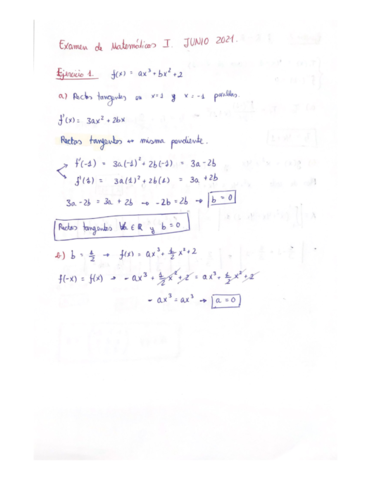 Examen de Matemáticas I. JUNIO 2021.
Ejercicio 1. f(x) = ax³ + bx² + 2
a) Rectas tangentes en x=1 y x=-1 paralelas.
f'(x) = 3ax² + 2bx
Rectas tangentes → misma pendiente.
f'(-1) = 3a(-1)² + 2b(-1) = 3a - 2b
f'(1) = 3a(1)² + 2b(1) = 3a + 2b
3a - 2b = 3a + 2b → -2b = 2b → b = 0
Rectas tangentes ∀a∈ℝ y b = 0
b) b = 1/2 → f(x) = ax³ + 1/2 x² + 2
f(-x) = f(x) → -ax³ + 1/2 x² + 2 = ax³ + 1/2 x² + 2
- ax³ = ax³ → a = 0